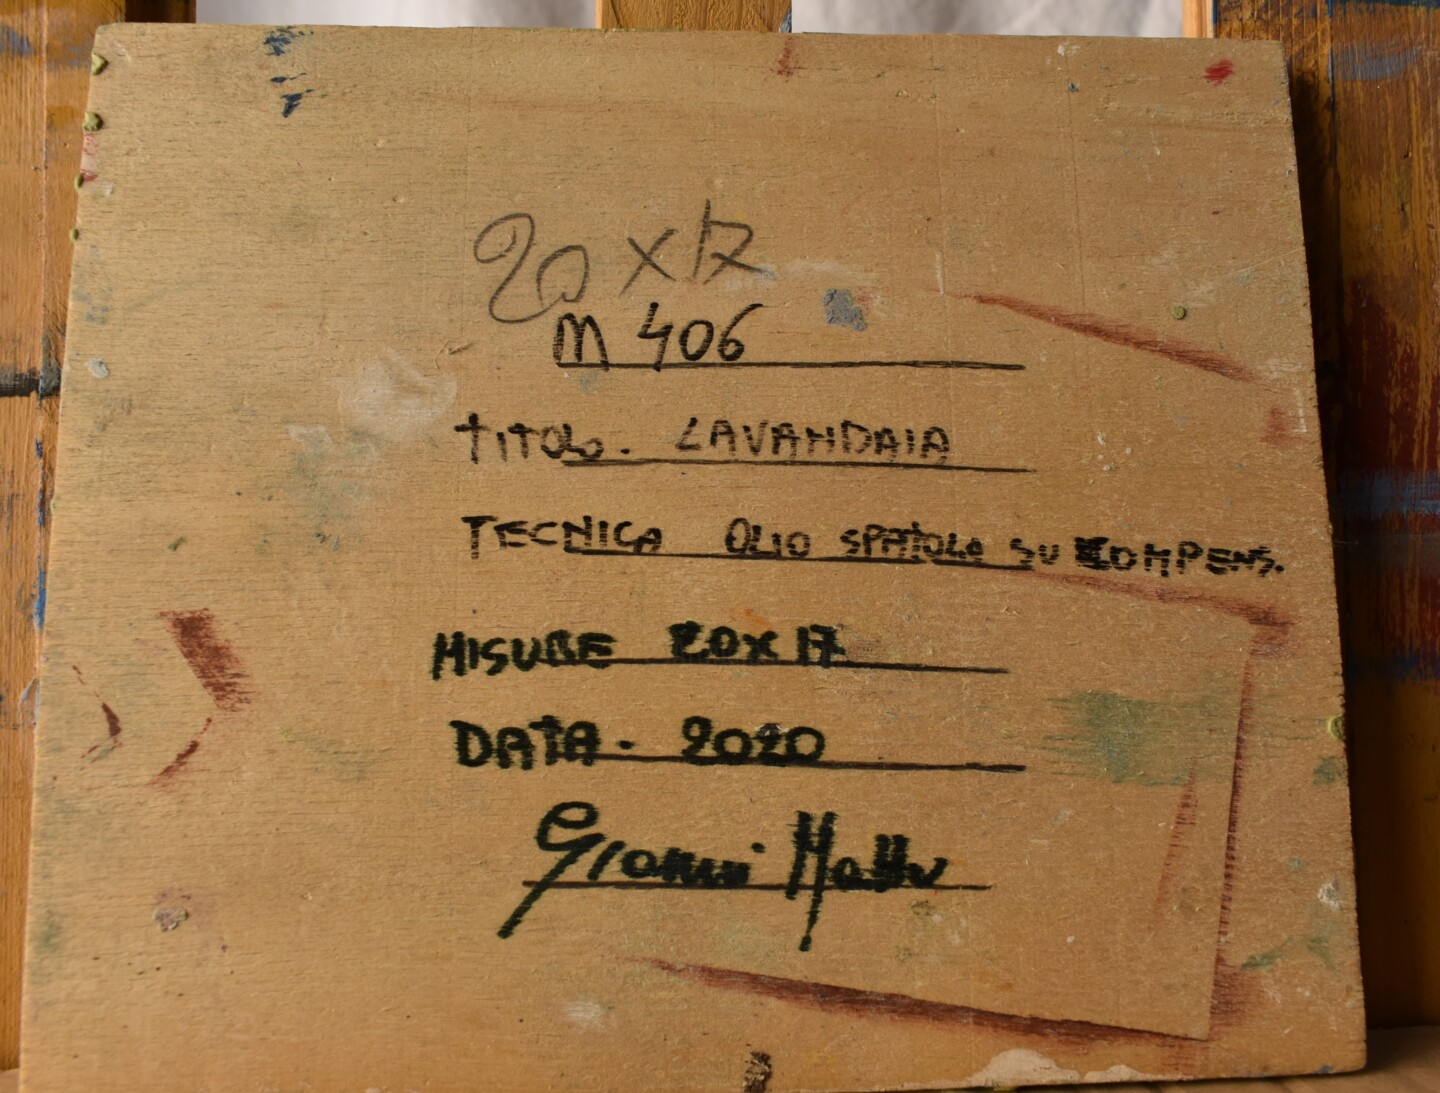 20 x 17
M 406
TITOLO. LAVANDAIA
TECNICA OLIO SPATOLA SU COMPENS.
MISURE 20x17
DATA. 2020
Gianni Mattu